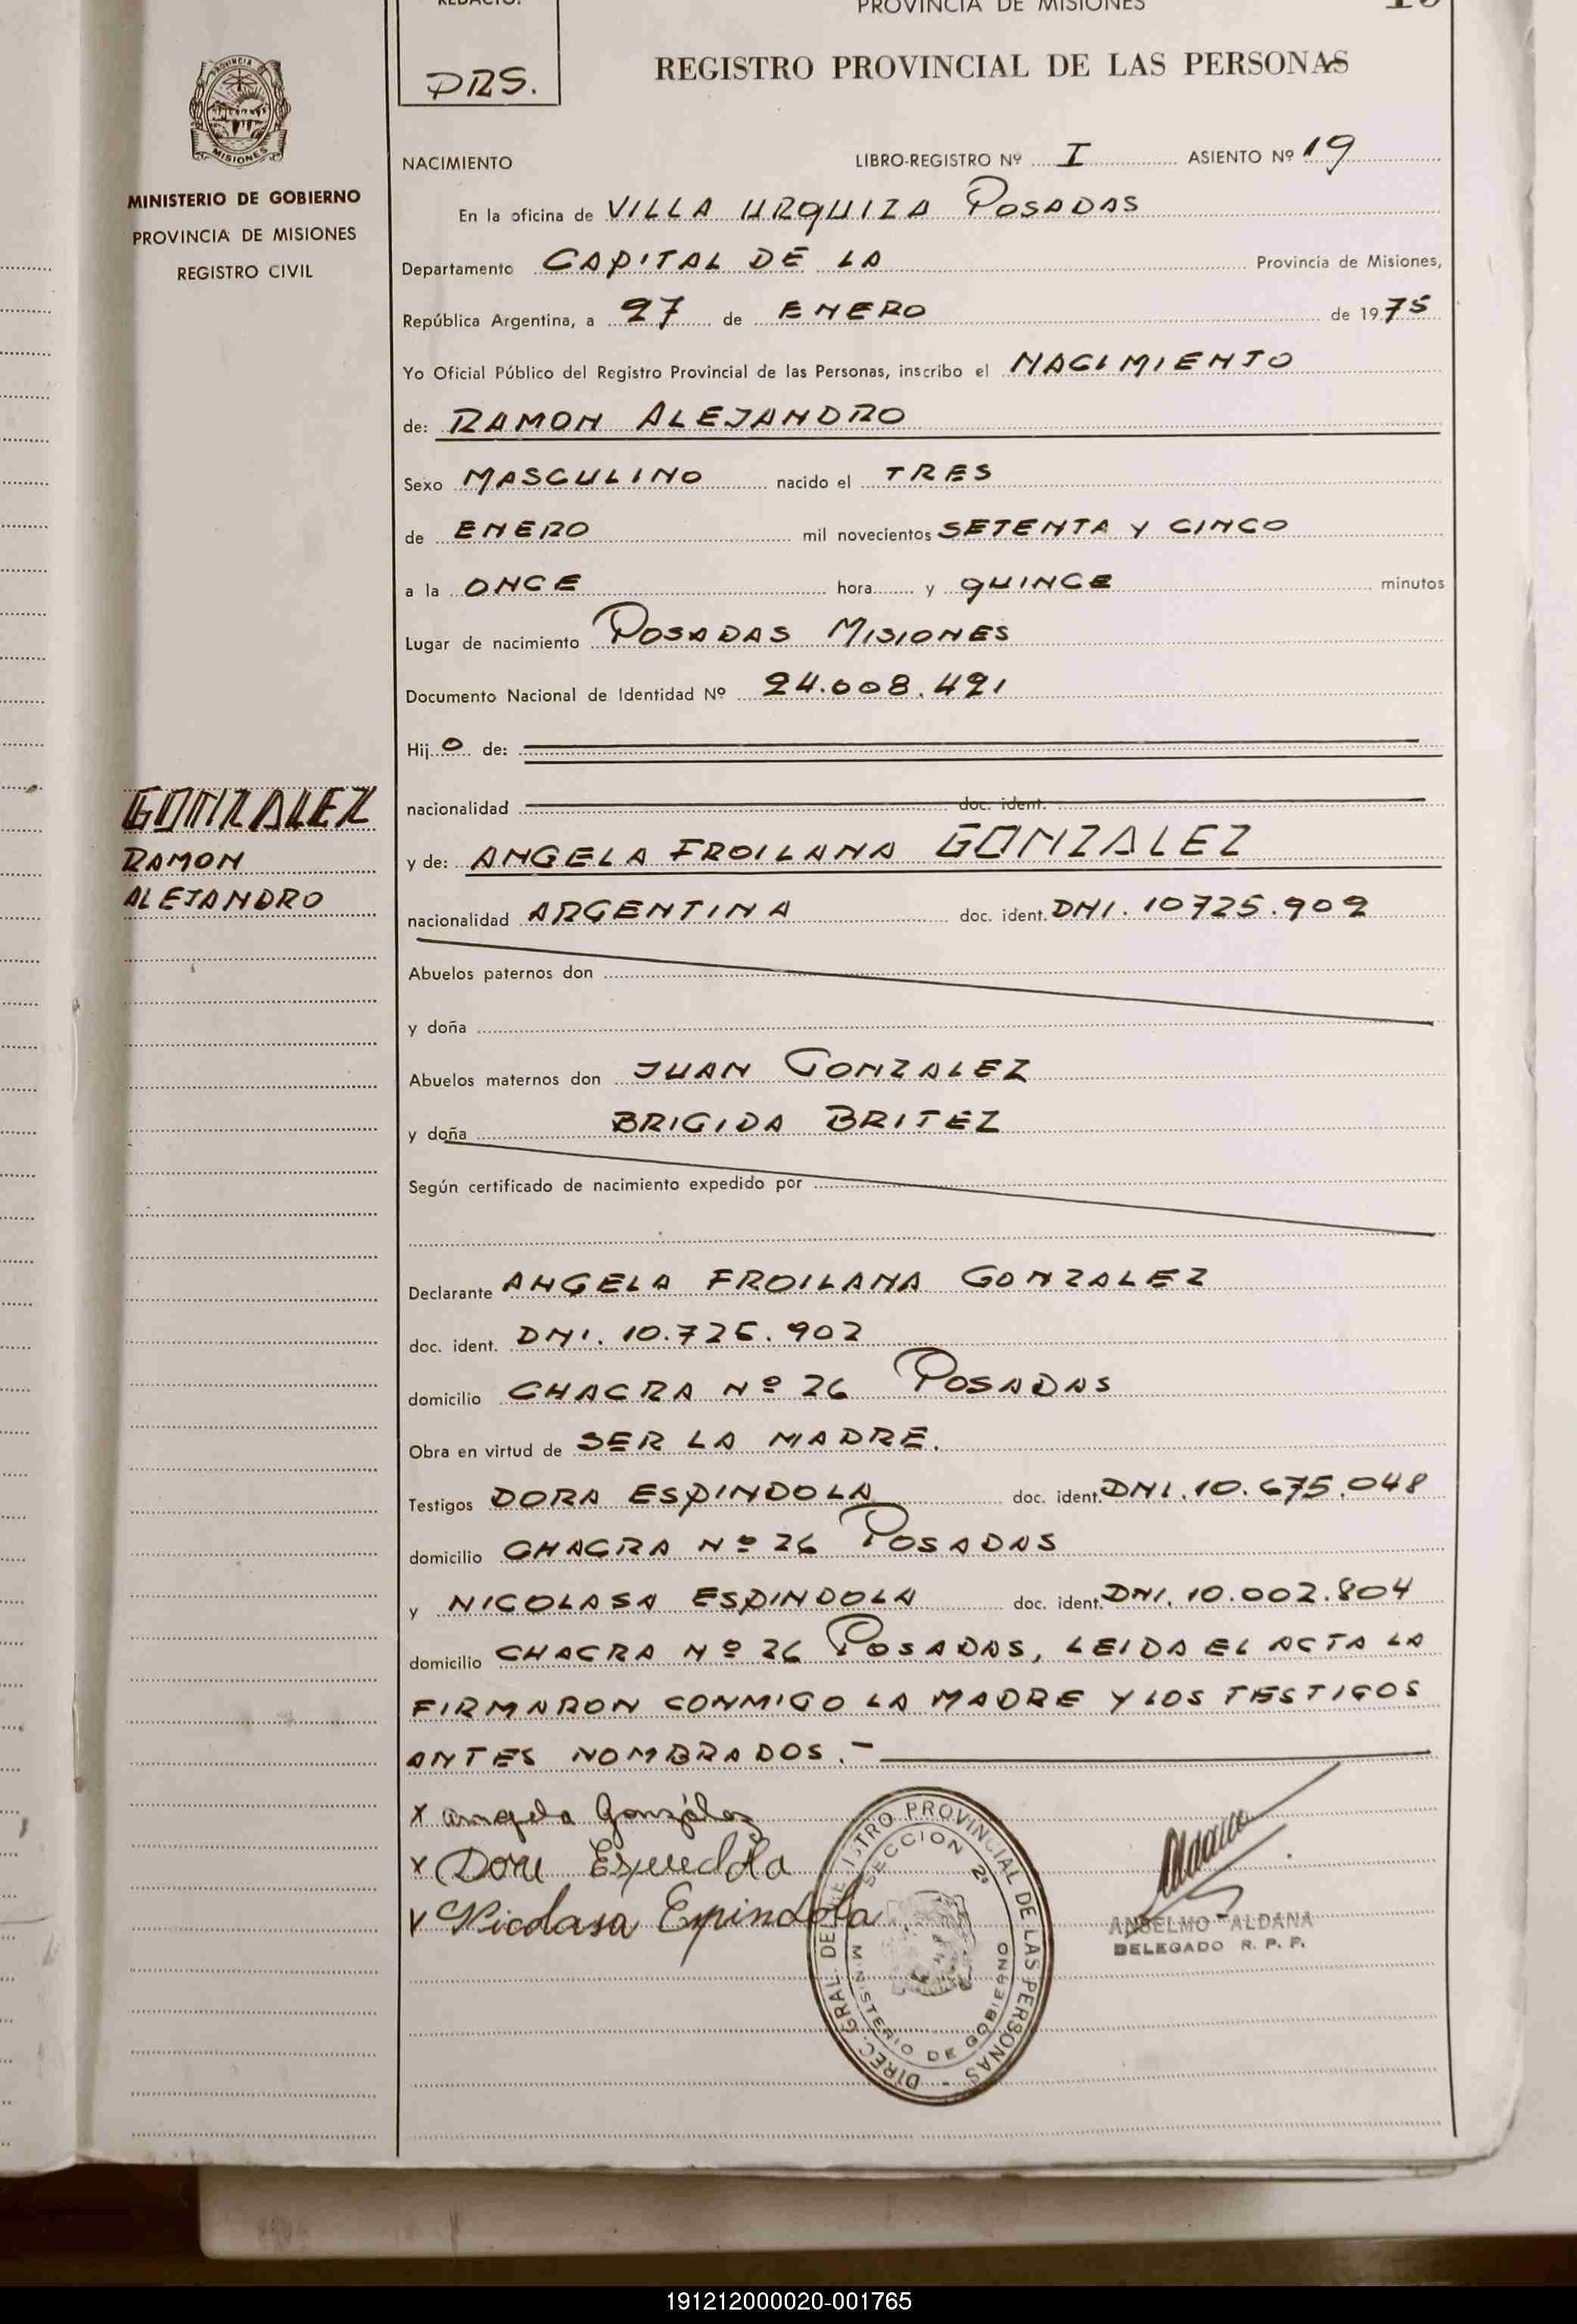 REDACTO:
PROVINCIA DE MISIONES
DRS.
REGISTRO PROVINCIAL DE LAS PERSONAS
PROVINCIA
MISIONES
MINISTERIO DE GOBIERNO
PROVINCIA DE MISIONES
REGISTRO CIVIL
NACIMIENTO LIBRO-REGISTRO Nº I ASIENTO Nº 19
En la oficina de VILLA URQUIZA POSADAS
Departamento CAPITAL DE LA Provincia de Misiones,
República Argentina, a 27 de ENERO de 1975
Yo Oficial Público del Registro Provincial de las Personas, inscribo el NACIMIENTO
de: RAMON ALEJANDRO
Sexo MASCULINO nacido el TRES
de ENERO mil novecientos SETENTA Y CINCO
a la ONCE hora y QUINCE minutos
Lugar de nacimiento POSADAS MISIONES
Documento Nacional de Identidad Nº 24.008.421
Hijo de:
nacionalidad doc. ident.
GONZALEZ
RAMON
ALEJANDRO
y de: ANGELA FROILANA GONZALEZ
nacionalidad ARGENTINA doc. ident. DNI. 10725.902
Abuelos paternos don
y doña
Abuelos maternos don JUAN GONZALEZ
y doña BRIGIDA BRITEZ
Según certificado de nacimiento expedido por
Declarante ANGELA FROILANA GONZALEZ
doc. ident. DNI. 10.725.902
domicilio CHACRA Nº 26 POSADAS
Obra en virtud de SER LA MADRE.
Testigos DORA ESPINDOLA doc. ident. DNI. 10.675.048
domicilio CHACRA Nº 26 POSADAS
y NICOLASA ESPINDOLA doc. ident. DNI. 10.002.804
domicilio CHACRA Nº 26 POSADAS, LEIDA EL ACTA LA
FIRMARON CONMIGO LA MADRE Y LOS TESTIGOS
ANTES NOMBRADOS.-
x Angela González
x Dora Espindola
x Nicolasa Espindola
DIREC. GRAL. DEL REGISTRO PROVINCIAL DE LAS PERSONAS -
SECCION 2ª
MINISTERIO DE GOBIERNO
ANSELMO ALDANA
DELEGADO R. P. P.
191212000020-001765